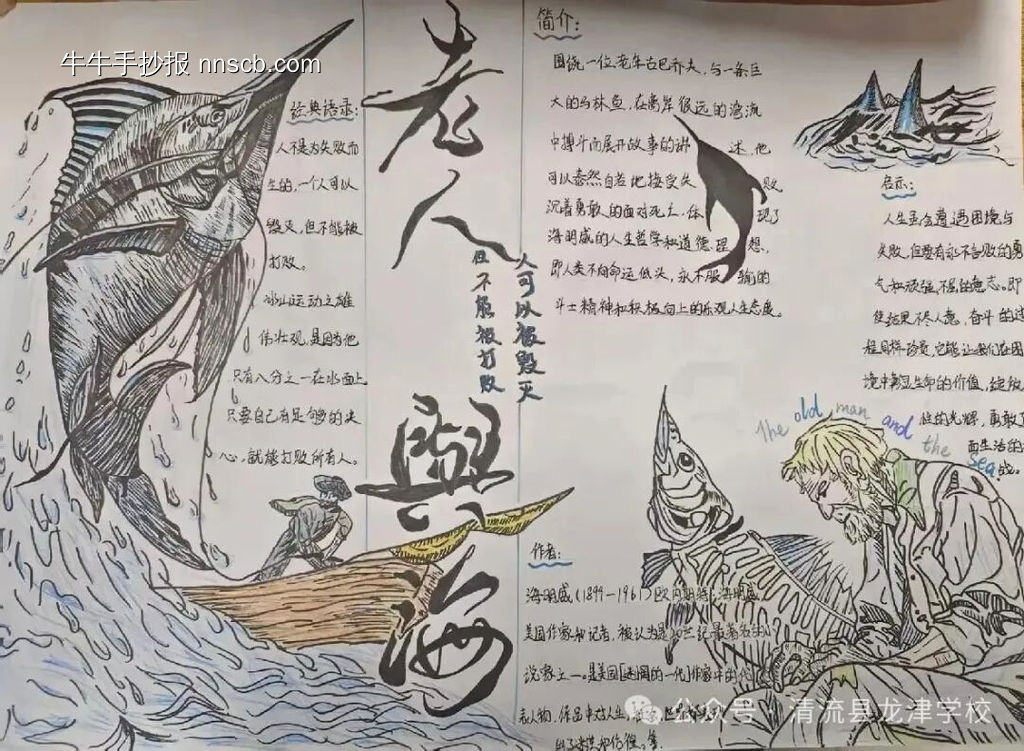 牛牛手抄报 nnscb.com
经典语录:
人不是为失败而
生的,一个人可以
毁灭,但不能被
打败。
冰山运动之雄
伟壮观,是因为他
只有八分之一在水面上
只要自己有足够的决
心,就能打败所有人。
老人與海
人可以被毁灭
但不能被打败
简介:
围绕一位老年古巴渔夫,与一条巨
大的马林鱼,在离岸很远的湾流
中搏斗而展开故事的讲述,他
可以泰然自若地接受失败
沉着勇敢的面对死亡,体现了
海明威的人生哲学和道德理想,
即人类不向命运低头,永不服输的
斗士精神和积极向上的乐观人生态度。
启示:
人生虽会遭遇困境与
失败,但要有永不言败的勇
气和顽强,不屈的意志。即
使结果不尽人意,奋斗的过
程同样珍贵,它能让我们在困
境中彰显生命的价值,绽放
的光辉,勇敢
面 生活的
战。
The old man and the Sea
作者:
海明威(1899-1961)欧内斯特·海明威
美国作家和记者,被认为是20世纪最著名的小
说家之一。是美国「迷惘的一代」作家中的代
表人物,作品中对人生,
公众号 · 清流县龙津学校
出了迷茫和彷徨。